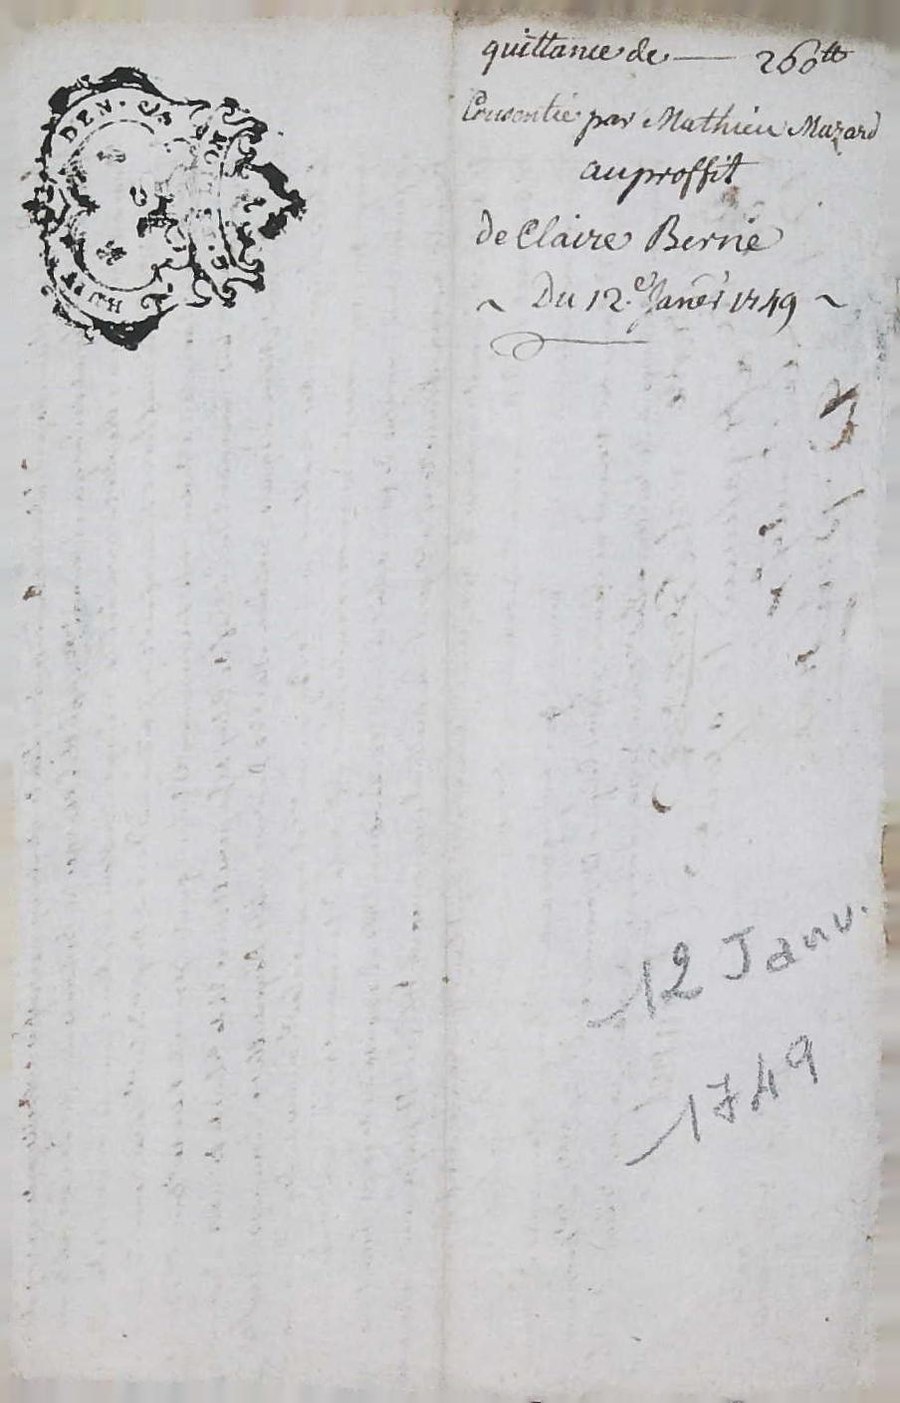 quittance de — 260ᵗᵗ
Consentie par Mathieu Mazard
au proffit
de Claire Berne
~ Du 12.ᵉ Janěr 1749 ~
HUIT DEN.
12 Janv.
1749